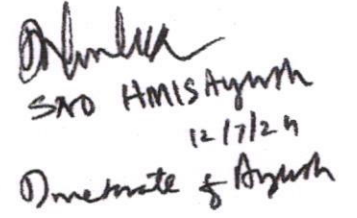 SNO HMIS Ayush
12/7/24
Directorate of Ayush